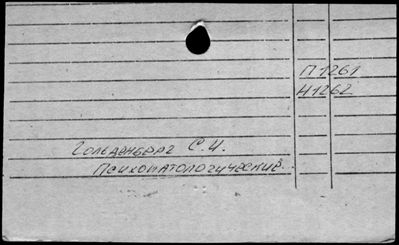 П1261
Н1262
Гольденберг С.И.
Психопатологические.